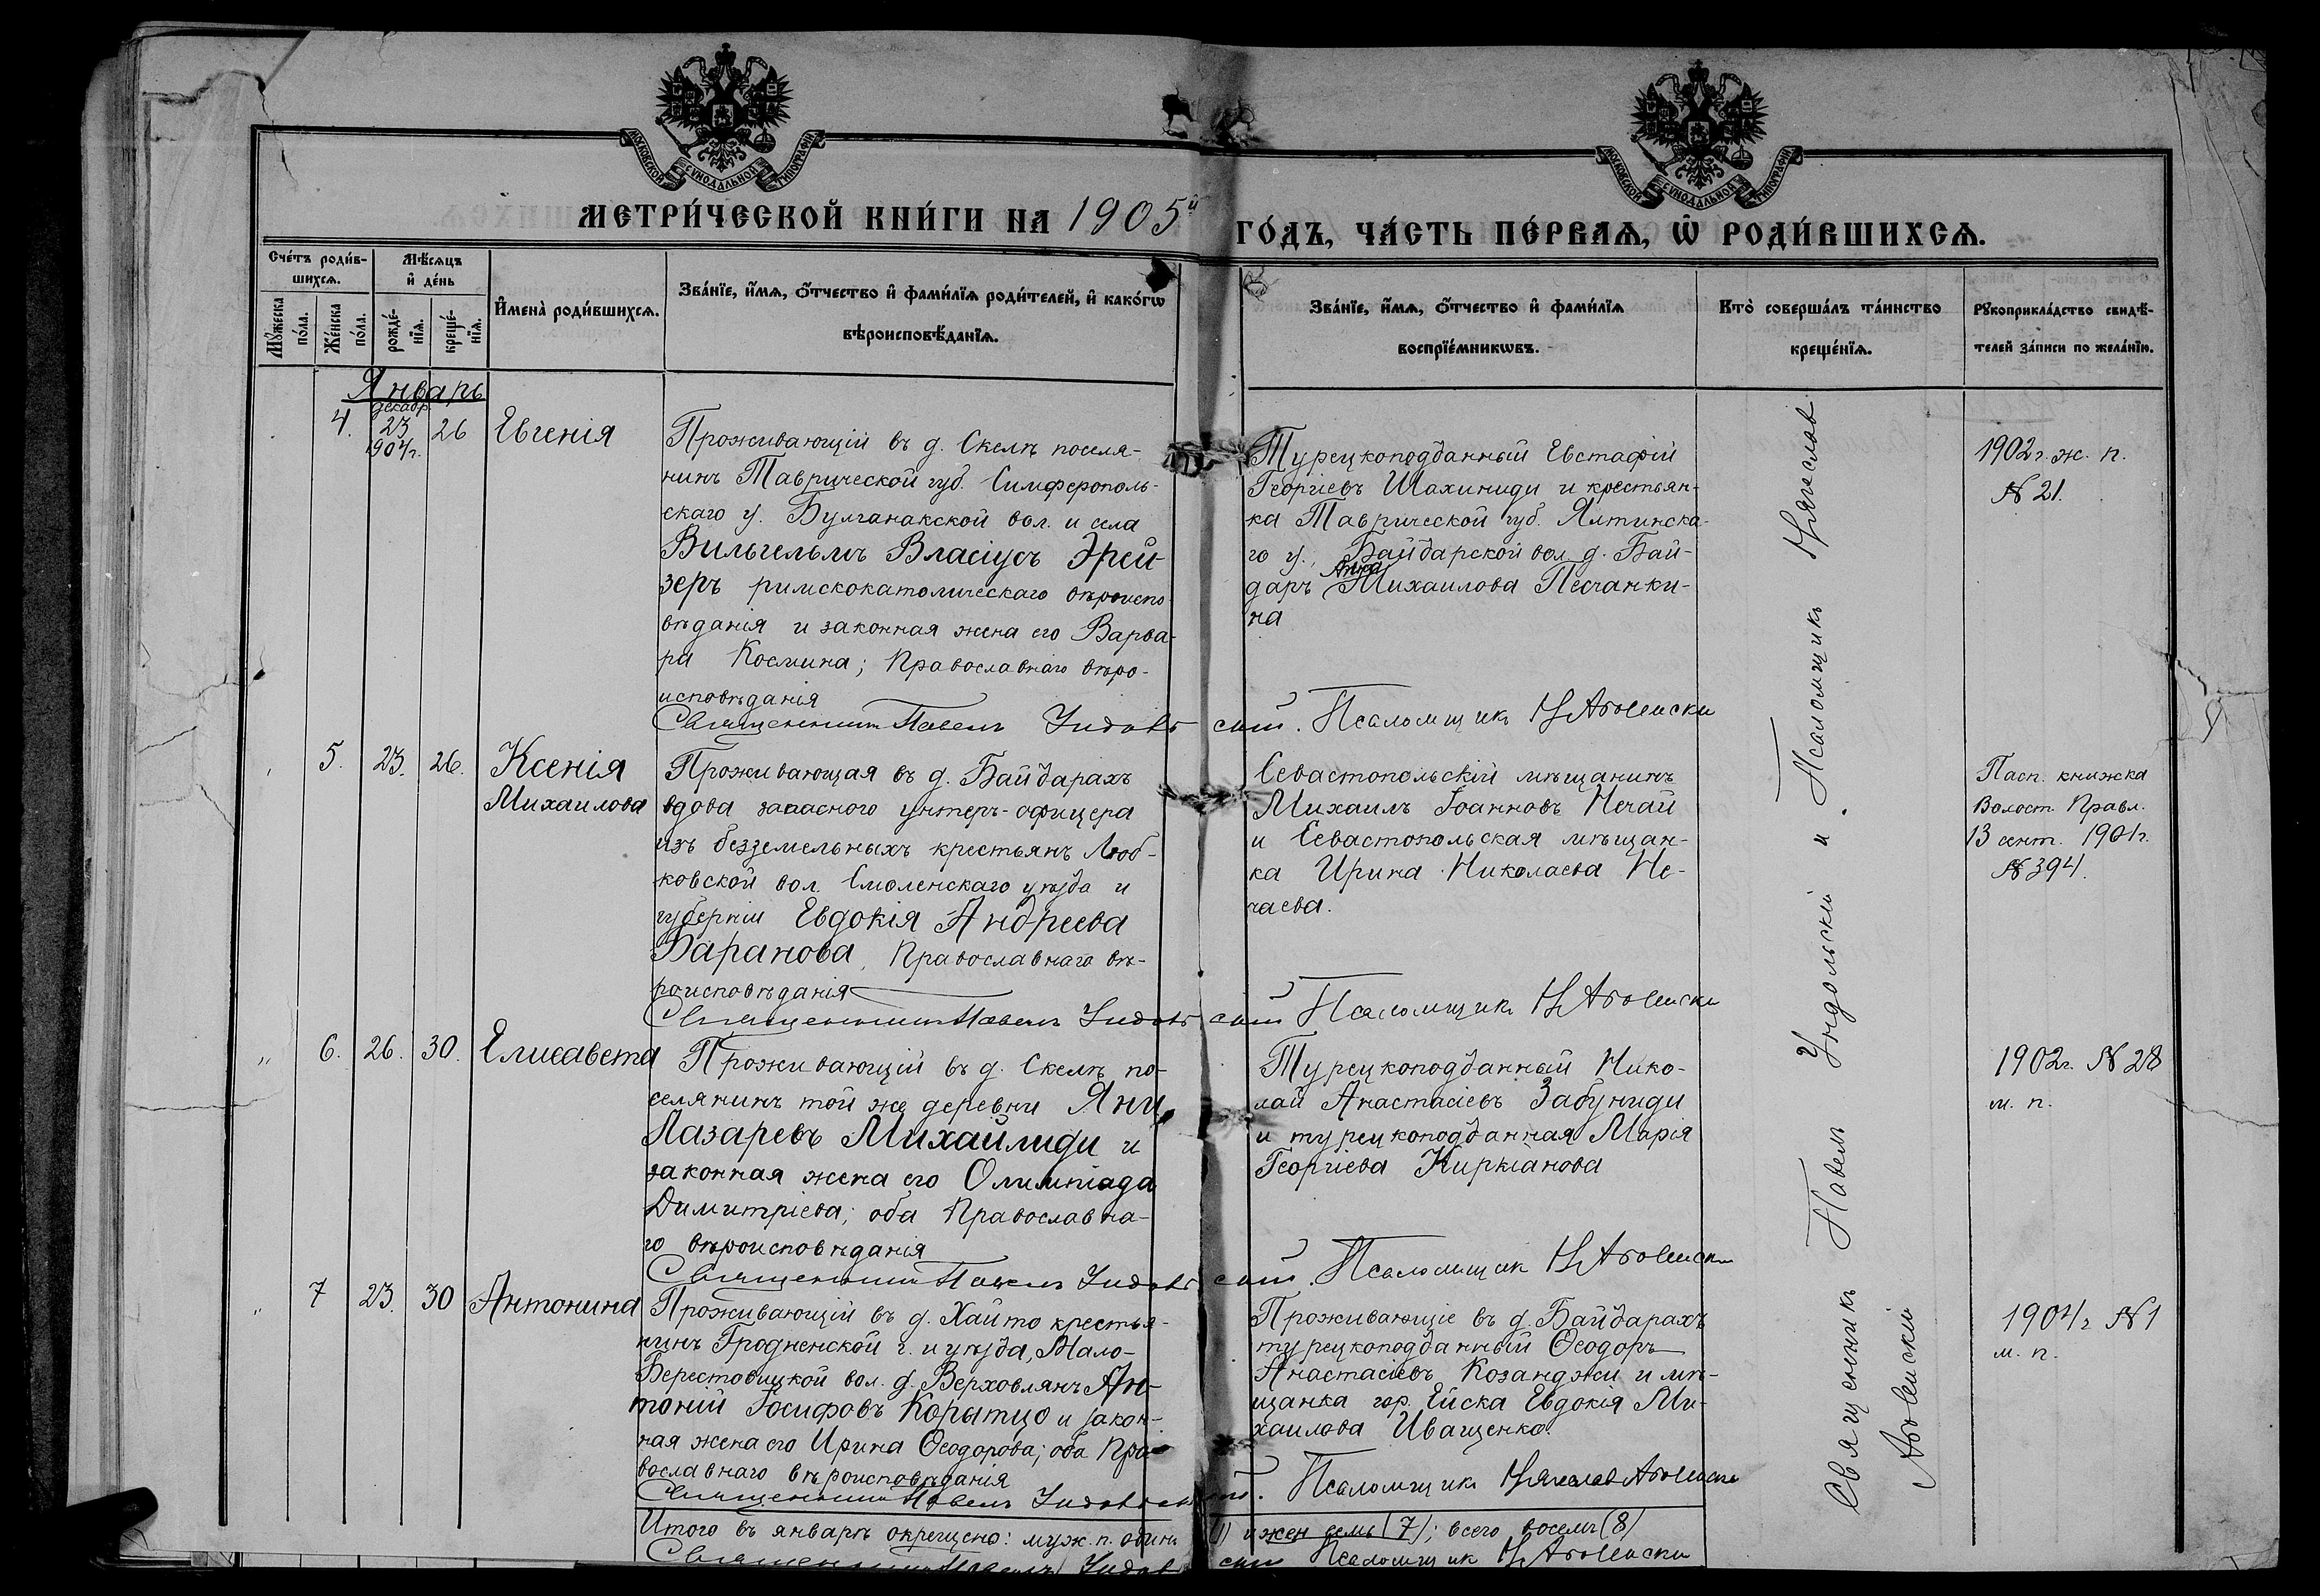 МОСКОВСКОЙ СѴНОДАЛЬНОЙ ТИПОГРАФІИ
МОСКОВСКОЙ СѴНОДАЛЬНОЙ ТИПОГРАФІИ
МЕТРИ́ЧЕСКОЙ КНИ́ГИ НА 1905й ГО́ДЪ, ЧА́СТЬ ПЕ́РВАѦ, Ѡ҆ РОДИ́ВШИХСѦ.
Сче́тъ роди́в-
шихсѧ.
Мꙋ́жеска по́ла.
Же́нска по́ла.
Мѣ́сѧцъ
и҆ де́нь
рожде́-
нїѧ.
креще́-
нїѧ.
И҆мена̀ роди́вшихсѧ.
Зва́нїе, и҆́мѧ, ѻ҆́тчество и҆ фами́лїѧ роди́телей, и҆ како́гѡ
вѣроисповѣ́данїѧ.
Зва́нїе, и҆́мѧ, ѻ҆́тчество и҆ фами́лїѧ
воспрїе́мникѡвъ.
Кто̀ соверша́лъ та́инство
креще́нїѧ.
Рꙋкоприкла́дство свидѣ́-
телей за́писи по жела́нїю.
Январь
4.
декабр.
23
904г.
26
Евгенія
Проживающій въ д. Скелѣ поселя-
нинъ Таврической губ. Симферополь-
скаго у. Булганакской вол. и села
Вильгельмъ Власіусъ Эрей-
зеръ римскокатолическаго вѣроиспо-
вѣданія и законная жена его Варва-
ра Космина; Православнаго вѣро-
исповѣданія
Турецкоподданный Евстафій
Георгіевъ Шахиниди и крестьян-
ка Таврической губ. Ялтинска-
го у., Байдарской вол. д. Бай-
даръ Анна Михаилова Песчанки-
на
1902г. ж. п.
№ 21.
Священникъ Павелъ Ундольскій. Псаломщикъ
5.
23.
26.
Ксенія
Михаилова
Проживающая въ д. Байдарахъ
вдова запаснаго унтеръ-офицера
изъ безземельныхъ крестьянъ Люб-
ковской вол. Смоленскаго уѣзда и
губерніи Евдокія Андреева
Баранова, Православнаго вѣ-
роисповѣданія
Севастопольскій мѣщанинъ
Михаилъ Іоанновъ Нечай
и Севастопольская мѣщан-
ка Ирина Николаева Не-
чаева.
Пасп. книжка
Волост. Правл.
13 сент. 1901г.
№ 394.
Священникъ Павелъ Ундольскій Псаломщикъ
"
6.
26.
30.
Елисавета
Проживающій въ д. Скелѣ по-
селянинъ той же деревни Яни
Лазаревъ Михайлиди и
законная жена его Олимпіада
Димитріева; оба Православна-
го вѣроисповѣданія
Турецкоподданный Нико-
лай Анастасіевъ Забуниди
и турецкоподданная Марія
Георгіева Кирьянова
1902г. № 28
м. п.
Священникъ Павелъ Ундольскій. Псаломщикъ
"
7
23.
30
Антонина
Проживающій въ д. Хайто крестья-
нинъ Гродненской г. и уѣзда, Мало-
Берестовицкой вол. д. Верховлянъ Ан-
тоній Іосифовъ Корытцо и закон-
ная жена его Ирина Ѳеодорова; оба Пра-
вославнаго вѣроисповѣданія
Проживающіе въ д. Байдарахъ
турецкоподданный Ѳеодоръ
Анастасіевъ Козанджи и мѣ-
щанка гор. Ейска Евдокія Ми-
хаилова Иващенко.
1904г № 1
м. п.
Священникъ Павелъ Ундольскій. Псаломщикъ
Священникъ Павелъ Ундольскій и Псаломщикъ
Итого въ январѣ окрещено: муж. п. одинъ (1) и жен семь (7); всего восемь (8)
Священникъ Павелъ Ундольскій Псаломщикъ